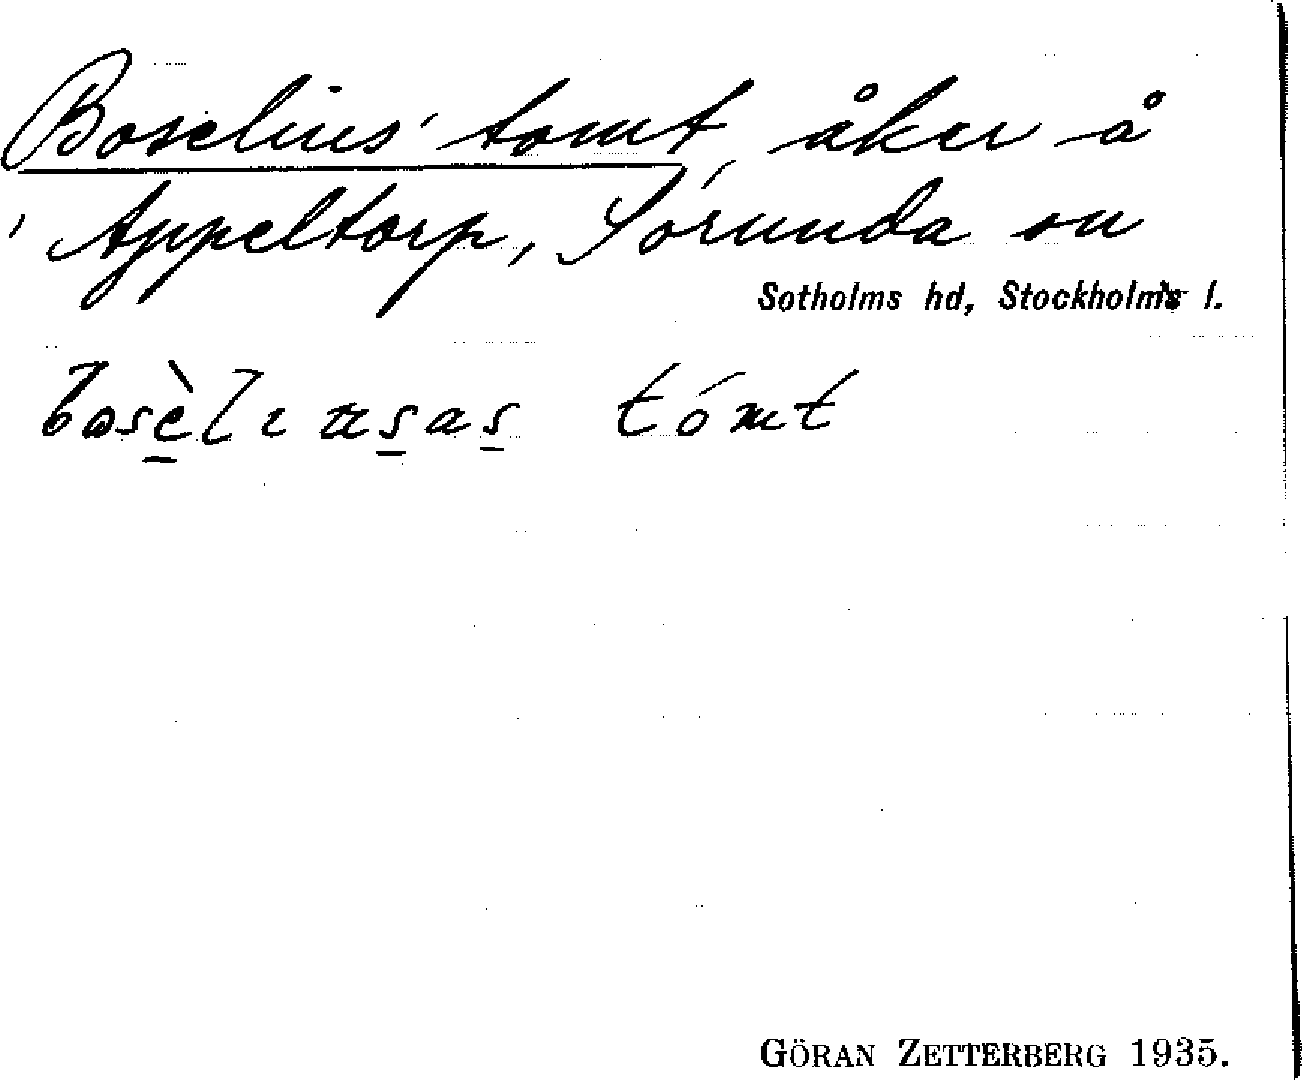 Boselius' tomt, åker å
Appeltorp, Sorunda sn
Sotholms hd, Stockholms l.
tómt
GÖRAN ZETTERBERG 1935.